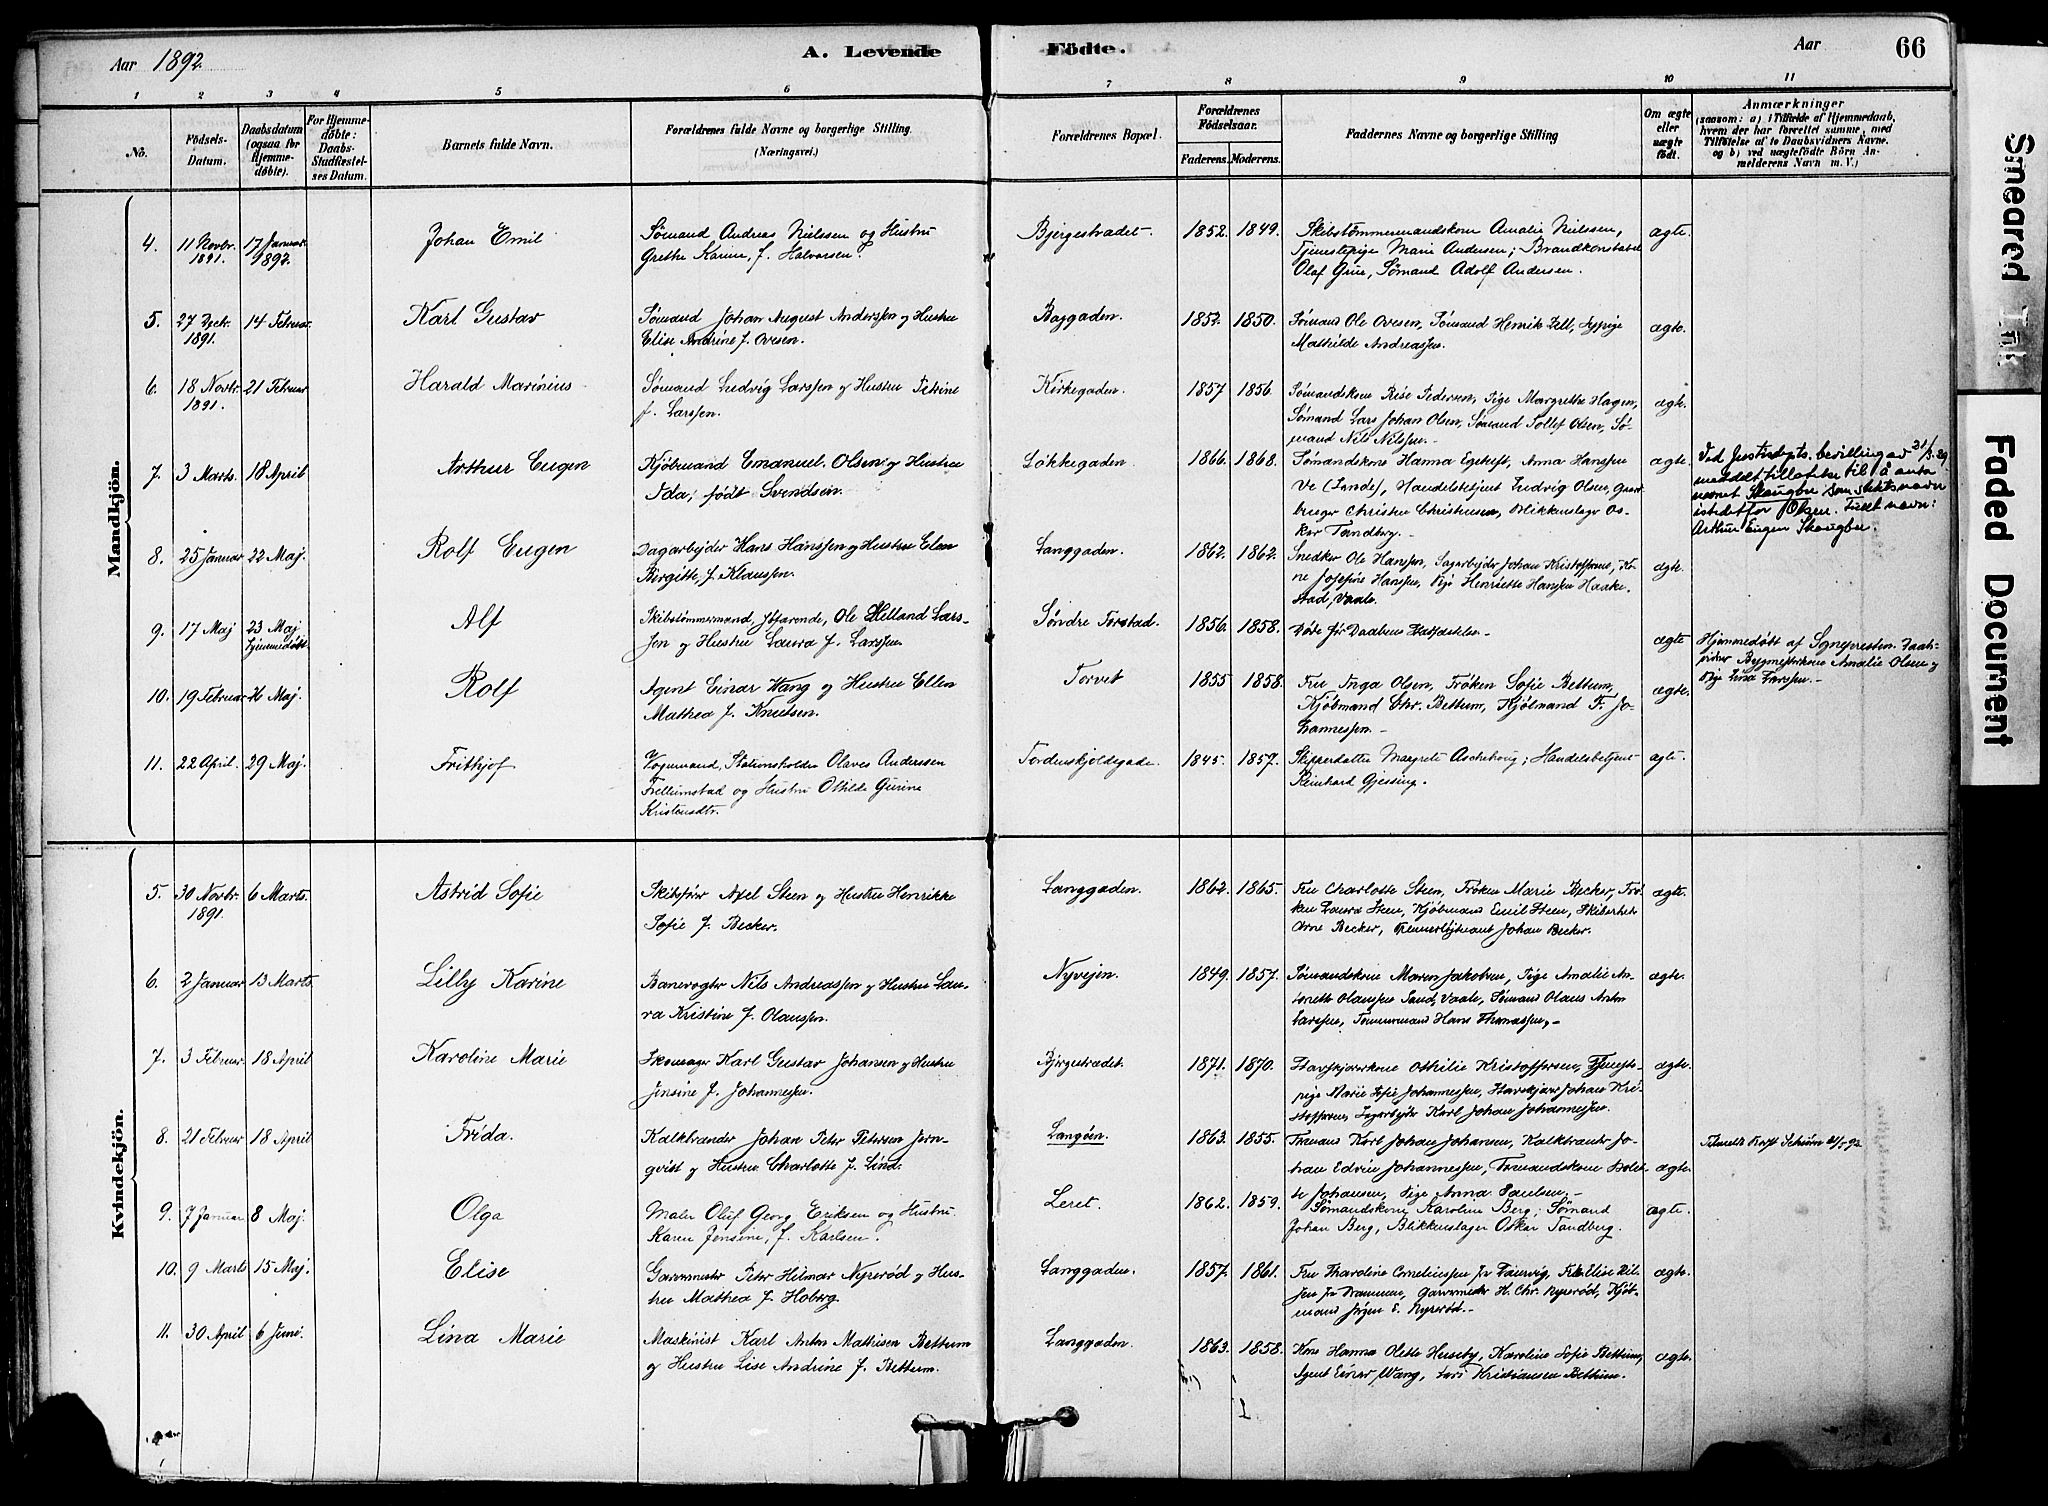 Aar 1892.
A. Levende
Födte.
Aar
66
1 2 3 4 5 6 7 8 9 10 11
No.
Födsels-
Datum.
Daabsdatum
(ogsaa for
Hjemme-
døbte).
For Hjemme-
døbte:
Daabs-
Stadfæstel-
ses Datum.
Barnets fulde Navn.
Forældrenes fulde Navne og borgerlige Stilling.
(Næringsvei.)
Forældrenes Bopæl.
Forældrenes
Fødselsaar.
Faderens. Moderens.
Faddernes Navne og borgerlige Stilling
Om ægte
eller
uægte
født.
Anmærkninger
(saasom: a) i Tilfælde af Hjemmedaab,
hvem der har forrettet samme, med
Tilføielse af to Daabsvidners Navne.
og b) ved uægtefødte Börn An-
melderens Navn m. V.)
Mandkjön.
4. 11 Novbr. 1891. 17 Januar 1892. Johan Emil
Sømand Andreas Nielssen og Hustru
Grethe Karine, f. Halvorsen.
Bjergestrædet. 1852. 1849.
Skibstømmermandskone Amalie Nielssen,
Tjenestepige Marie Andersen; Brandkonstabel
Olaf Grue, Sømand Adolf Andersen.
ægte.
5. 27 Decbr. 1891. 14 Februar. Karl Gustav
Sømand Johan August Anderssen og Hustru
Elise Andrine f. Ovesen.
Baggaden. 1852. 1850.
Sømand Ole Ovesen, Sømand Henrik Zell, Sypige
Mathilde Andreassen.
ægte.
6. 18 Novbr. 1891. 21 Februar Harald Marinius
Sømand Ludvig Larssen og Hustru Petrine
f. Larssen.
Kirkegaden. 1857 1856.
Sømandskone Rise Pedersen, Pige Margrethe Hagen,
Sømand Lars Johan Olsen, Sømand Tollef Olsen, Sø-
mand Nils Nilssen.
ægte.
7. 3 Marts. 18 April Arthur Eugen
Kjøbmand Emanuel Olsen og Hustru
Ida, født Svendsen.
Løkkegaden. 1866. 1868.
Sømandskone Hanna Egekvist, Anna Hanssen
Ve (Sande), Handelsbetjent Ludvig Olsen, Gaard-
bruger Christen Christensen, Blikkenslager Os-
kar Tandberg.
ægte.
Ved Justisdepts. bevilling av 31/8.29
meddelt tillatelse til å anta
navnet Skaugbæ som slektsnavn
istedetfor Olsen. Fullt navn:
Arthur Eugen Skaugbæ.
8. 25 Januar 22 Maj. Rolf Eugen
Dagarbejder Hans Hanssen og Hustru Elen
Birgitte, f. Klaussen.
Langgaden. 1862. 1862.
Snedker Ole Hanssen, Sagarbejder Johan Kristoffersen, Ko-
ne Josefine Hanssen, Pige Henriette Hanssen Haake-
stad, Vaale.
ægte.
9. 17 Maj 23 Maj hjemmedøbt. Alf
Skibstømmermand, søfarende, Ole Helland Lars-
sen og Hustru Laura f. Larssen.
Søndre Torstad. 1856. 1858.
Døde før Daabens Stadfæstelse.
ægte
Hjemmedøbt af Sognepresten. Daab-
vidner Bygmesterkone Amalie Olsen og
Pige Lina Larssen.
10. 19 Februar 26 Maj. Rolf
Agent Einar Wang og Hustru Ellen
Mathea f. Knutsen.
Torvet 1855 1858.
Fru Inga Olsen, Frøken Sofie Bettum,
Kjøbmand Chr. Bettum, Kjøbmand F. Jo-
hannessen.
ægte.
11. 22 April. 29 Maj. Frithjof
Vognmand, Stationsholder Olaves Anderssen
Frellumstad og Hustru Othilde Gurine
Kristensdtr.
Tordenskjoldsgade. 1845. 1857.
Skipperdatter Margrete Aschehoug; Handelsbetjent
Reinhard Gjessing.
ægte.
Kvindekjön.
5. 30 Novbr. 1891. 6 Marts. Astrid Sofie
Skibsfører Axel Steen og Hustru Henrikke
Sofie f. Becker.
Langgaden. 1862. 1865.
Fru Charlotte Steen, Frøken Marie Becker, Frø-
ken Laura Steen, Kjøbmand Emil Steen, Skibsreder
Arne Becker, Premierløjtnant Johan Becker.
ægte.
6. 2 Januar 13 Marts. Lilly Karine
Banevogter Nils Andreassen og Hustru Lau-
ra Kristine f. Olaussen.
Nyvejen. 1849. 1857.
Sømandskone Maren Jakobsen, Pige Amalie An-
tonette Olaussen Sand, Vaale, Sømand Olaus Anton
Larssen, Tømmermand Hans Thomassen.
ægte.
7. 3 Februar 18 April Karoline Marie
Skomager Karl Gustav Johansen og Hustru
Jensine f. Johannessen.
Bjergestrædet. 1871. 1870.
Havskjærkone Othilie Kristoffersen, Tjeneste-
pige Marie Sofie Johannessen, Havskjær Johan Kri-
stoffersen, Sagarbejder Karl Johan Johannessen.
ægte.
8. 21 Februar 18 April Frida.
Kalkbrænder Johan Peter Petersen Jern-
qvist og Hustru Charlotte f. Lind.
Langøen. 1863. 1855.
Formand Karl Johan Johansen, Kalkbrænder Jo-
han Edvin Johannessen, Formandskone Bolet-
te Johansen, Pige Anna Paulsen.
ægte.
9. 7 Januar 8 Maj. Olga
Maler Oluf Georg Eriksen og Hustru
Karen Jensine, f. Karlsen.
Leret. 1862. 1859.
Sømandskone Karoline Berg; Sømand
Johan Berg, Blikkenslager Oskar Tandberg.
ægte.
10. 9 Marts 15 Maj. Elise
Garvermester Peter Hilmar Nyrerød og Hus-
tru Mathea f. Hoberg.
Langgaden. 1857. 1861.
Fru Karoline Corneliussen fr Laurvig, Frk Elise Nil-
sen fr Drammen, Garvermester H. Chr. Nyrerød, Kjøb-
mand Jørgen E. Nyrerød.
ægte.
11. 30 April 6 Juni. Lina Marie
Maskinist Karl Anton Mathisen Bettum
og Hustru Lise Andrine f. Bettum.
Langgaden. 1863. 1858.
Kone Hanna Olette Huseby, Karoline Sofie Bettum,
Agent Einar Wang, Lars Kristiansen Bettum.
ægte.
Smeared Ink
Faded Document